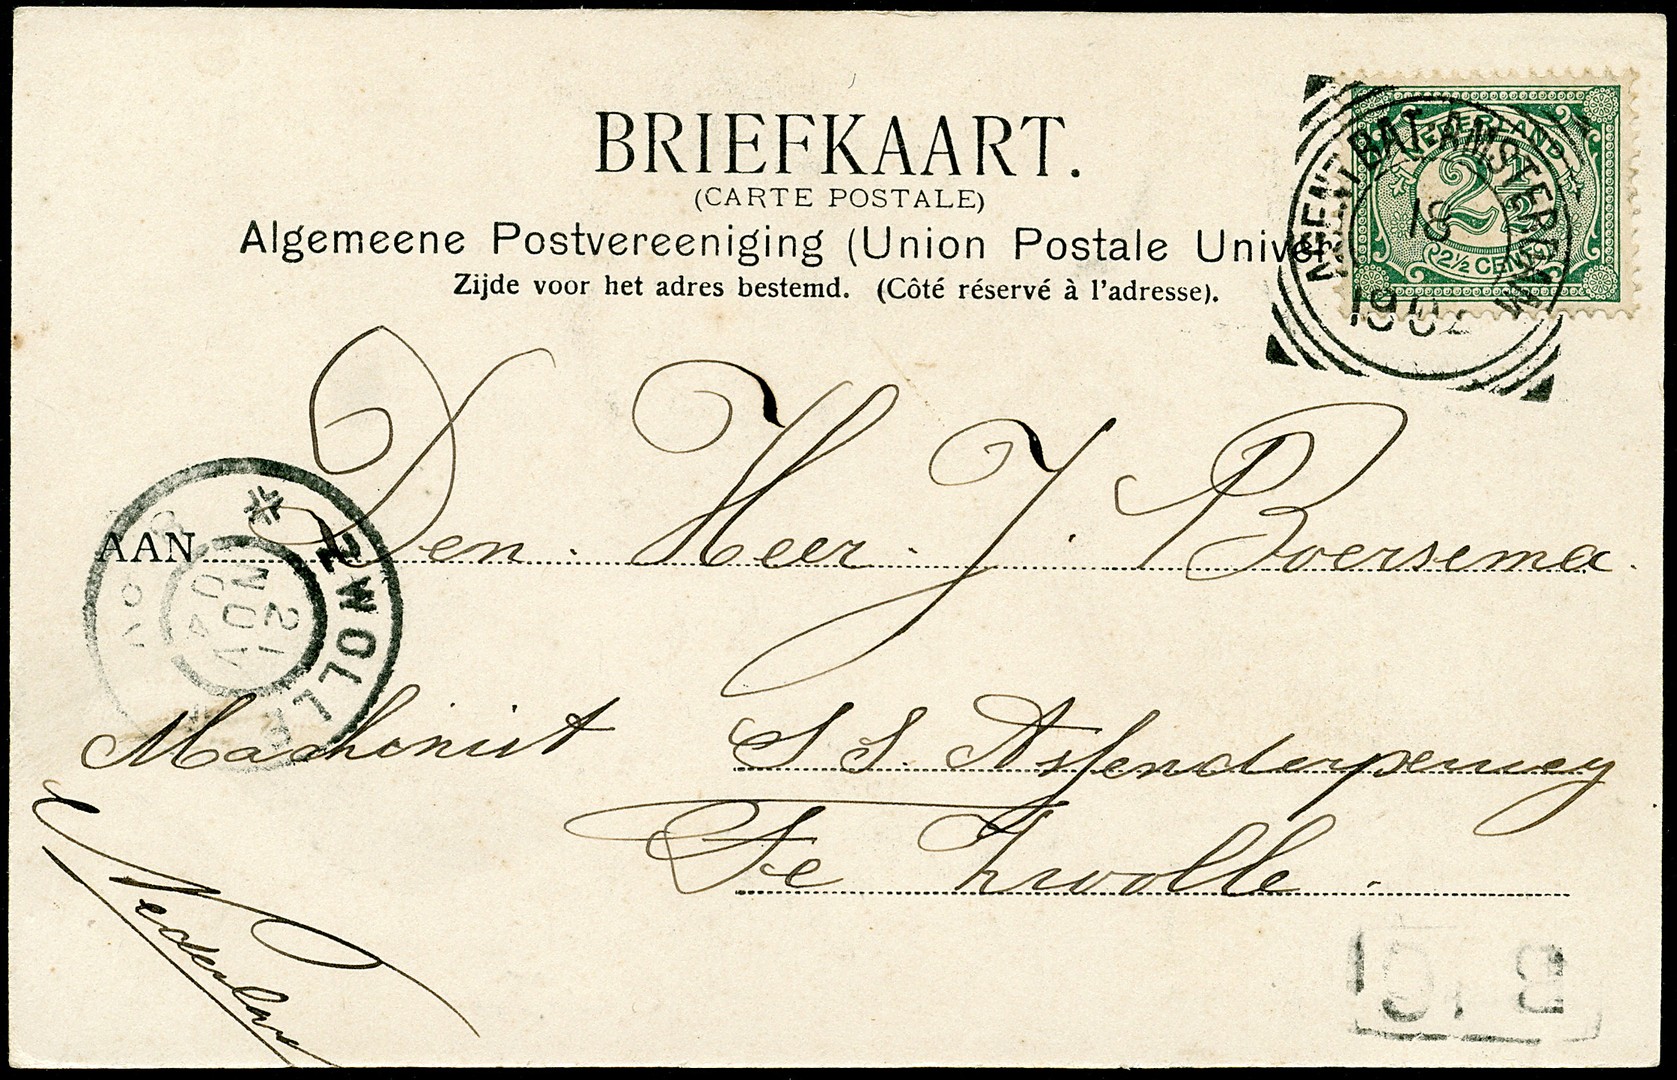 BRIEFKAART.
(CARTE POSTALE)
Algemeene Postvereeniging (Union Postale Univer
Zijde voor het adres bestemd. (Côté réservé à l'adresse).
NEDERLAND
2½
2½ CENT
AGENT BAT-AMSTERDAM
18
AAN Den Heer J. Boersema.
ZWOLLE
21
NOV
04
Machinist S S. Assenderperwey
Te Zwolle.
Nederland